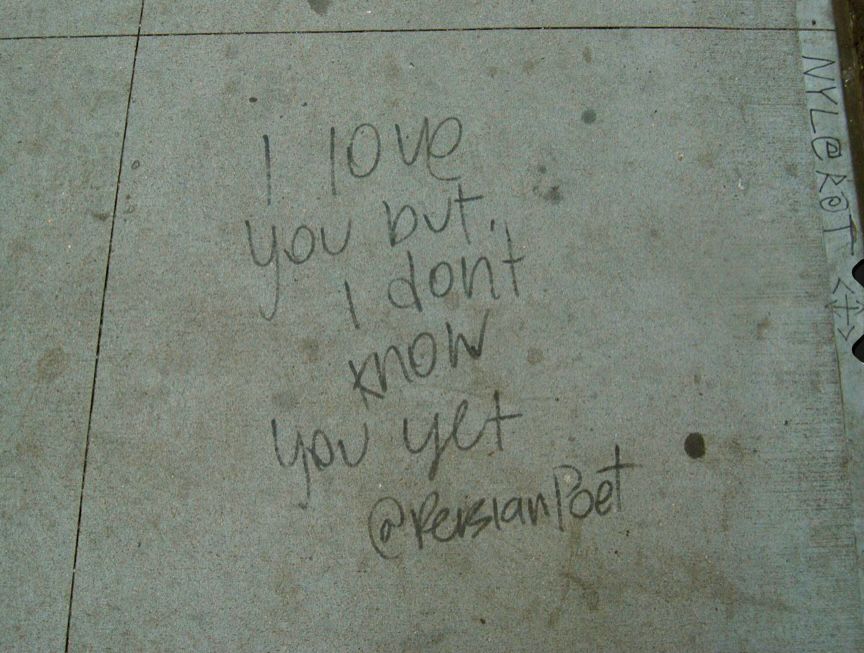 I love
you but,
I dont
know
you yet
@PersianPoet
NYL@R@T <†>